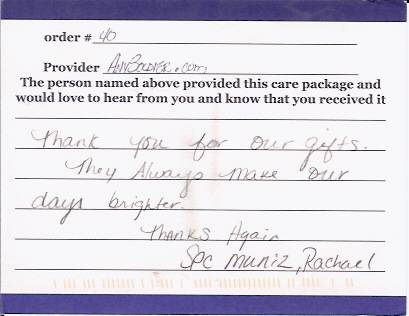 order # 40
Provider AnySoldier.com
The person named above provided this care package and
would love to hear from you and know that you received it
Thank you for our gifts.
They Always make our
days brighter.
Thanks Again
Spc Muniz, Rachael